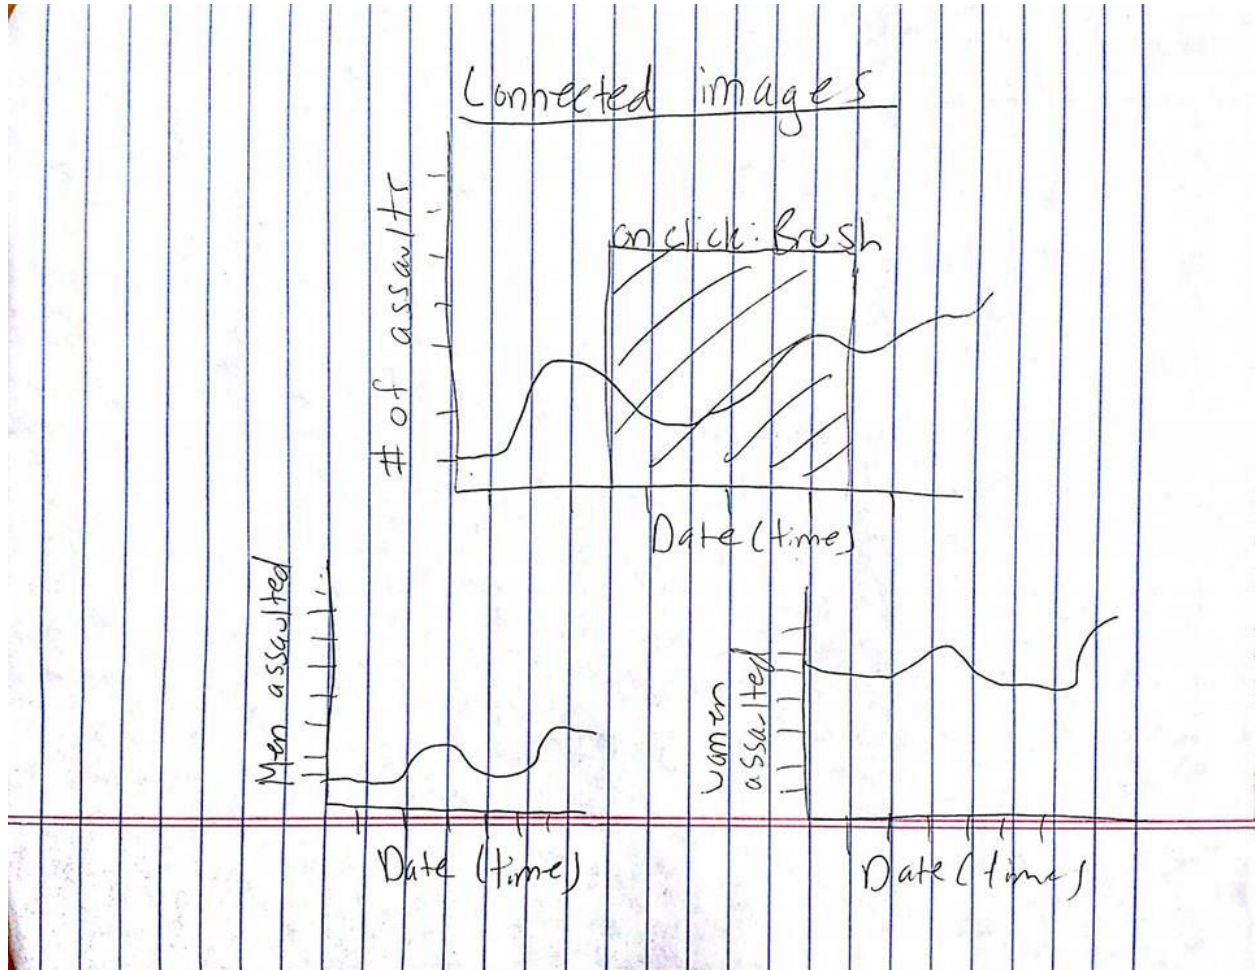 Connected images
# of assaults
on click: Brush
Date (time)
Men assaulted
Date (time)
women
assaulted
Date (time)